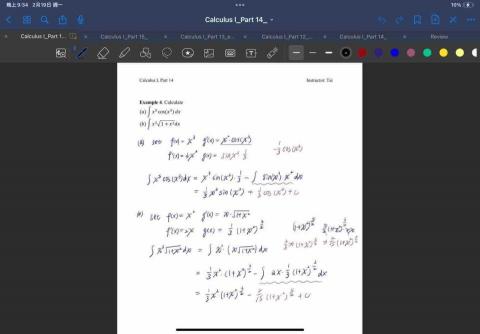 晚上9:34 2月19日 週一
10%
Calculus I_Part 14_
Calculus I_Part 1...
Calculus I_Part 15_
Calculus I_Part 13_a...
Calculus I_Part 12_...
Calculus I_Part 14_
Review
Calculus I, Part 14
Instructor: Tsi
Example 4. Calculate
(a) ∫ x⁵ cos(x³) dx
(b) ∫ x³√(1 + x²) dx
(a) set f(x) = x³ g'(x) = x² cos(x³)
g(x) = sin(x³) 1/3
-1/3 cos(x³)
∫ x⁵ cos(x³) dx = x³ sin(x³) · 1/3 - ∫ sin(x³) x² dx
= 1/3 x³ sin(x³) + 1/3 cos(x³) + C
set f(x) = x² g'(x) = x · √(1+x²)
f'(x) = 2x g(x) = 1/3 (1+x²)^(3/2)
∫ x³ √(1+x²) dx = ∫ x² (x √(1+x²)) dx
= 1/3 x² · (1+x²)^(3/2) - ∫ 2x · 1/3 (1+x²)^(3/2) dx
= 1/3 x² (1+x²)^(3/2) - 2/15 (1+x²)^(5/2) + C